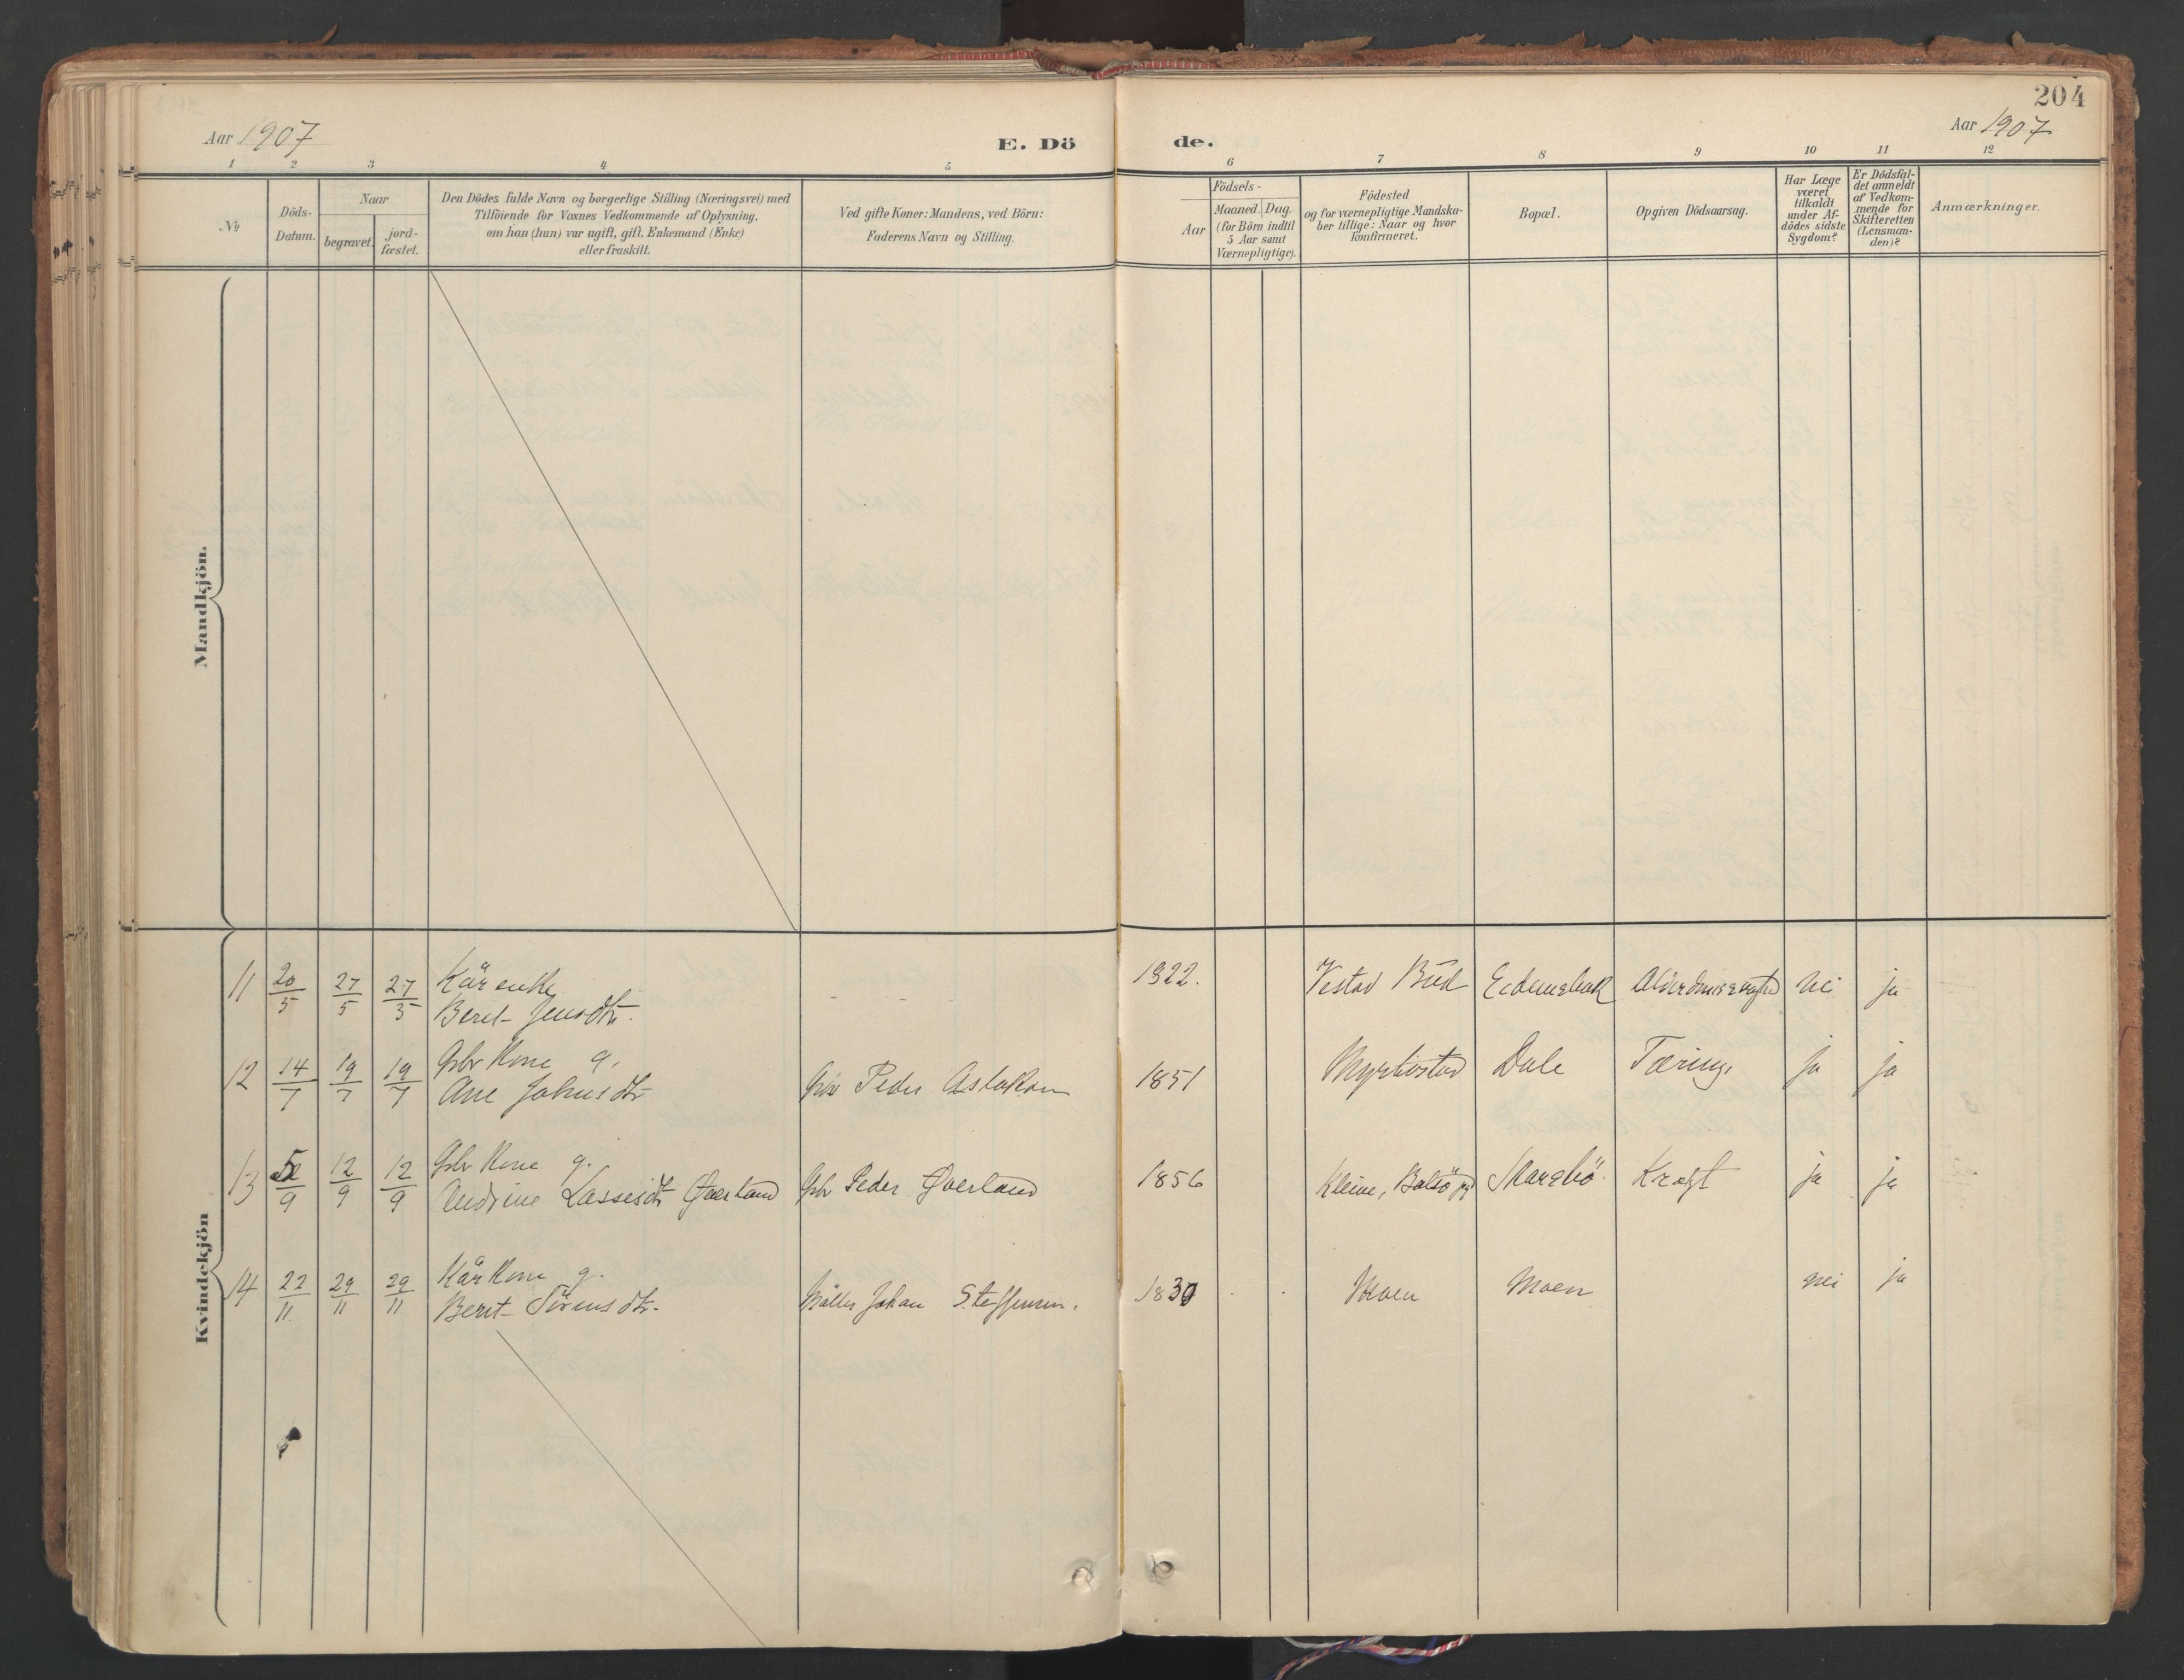 204
Aar 1907
E. Dö
de.
Aar 1907
1 2 3 4 5 6 7 8 9 10 11 12
No
Döds-Datum.
Naar
begravet.
jord-fæstet.
Den Dödes fulde Navn og borgerlige Stilling (Næringsvei) med
Tilföiende for Voxnes Vedkommende af Oplysning,
om han (hun) var ugift, gift, Enkemand (Enke)
eller fraskilt.
Ved gifte Koner: Mandens, ved Börn:
Faderens Navn og Stilling.
Födsels-
Aar
Maaned. Dag.
(for Börn indtil
5 Aar samt
Værnepligtige).
Födested
og for værnepligtige Mandska-
ber tillige: Naar og hvor
konfirmeret.
Bopæl.
Opgiven Dödsaarsag.
Har Læge
været
tilkaldt
under Af-
dödes sidste
Sygdom?
Er Dödsfal-
det anmeldt
af Vedkom-
mende for
Skifteretten
(Lensman-
den)?
Anmærkninger.
Mandkjön.
Kvindekjön
11 20/5 27/5 27/5 Kårenke
Beret Jensdtr. - - 1822. Vestad Bud nei ja
12 14/7 19/7 19/7 Gbr Kone g.
Ane Johnsdtr Gbr Peder Aslaksen 1851 Dale Tæring. ja ja
13 5/9 12/9 12/9 Gbr Kone g.
Andrine Lassesdtr Øverland Gbr Peder Øverland 1856 Kleive, Bolsö pg Harebö Kræft ja ja
14 22/11 29/11 29/11 Kårkone g.
Beret Sörensdtr. Johan Steffensen. 1830 Moen Moen nei ja